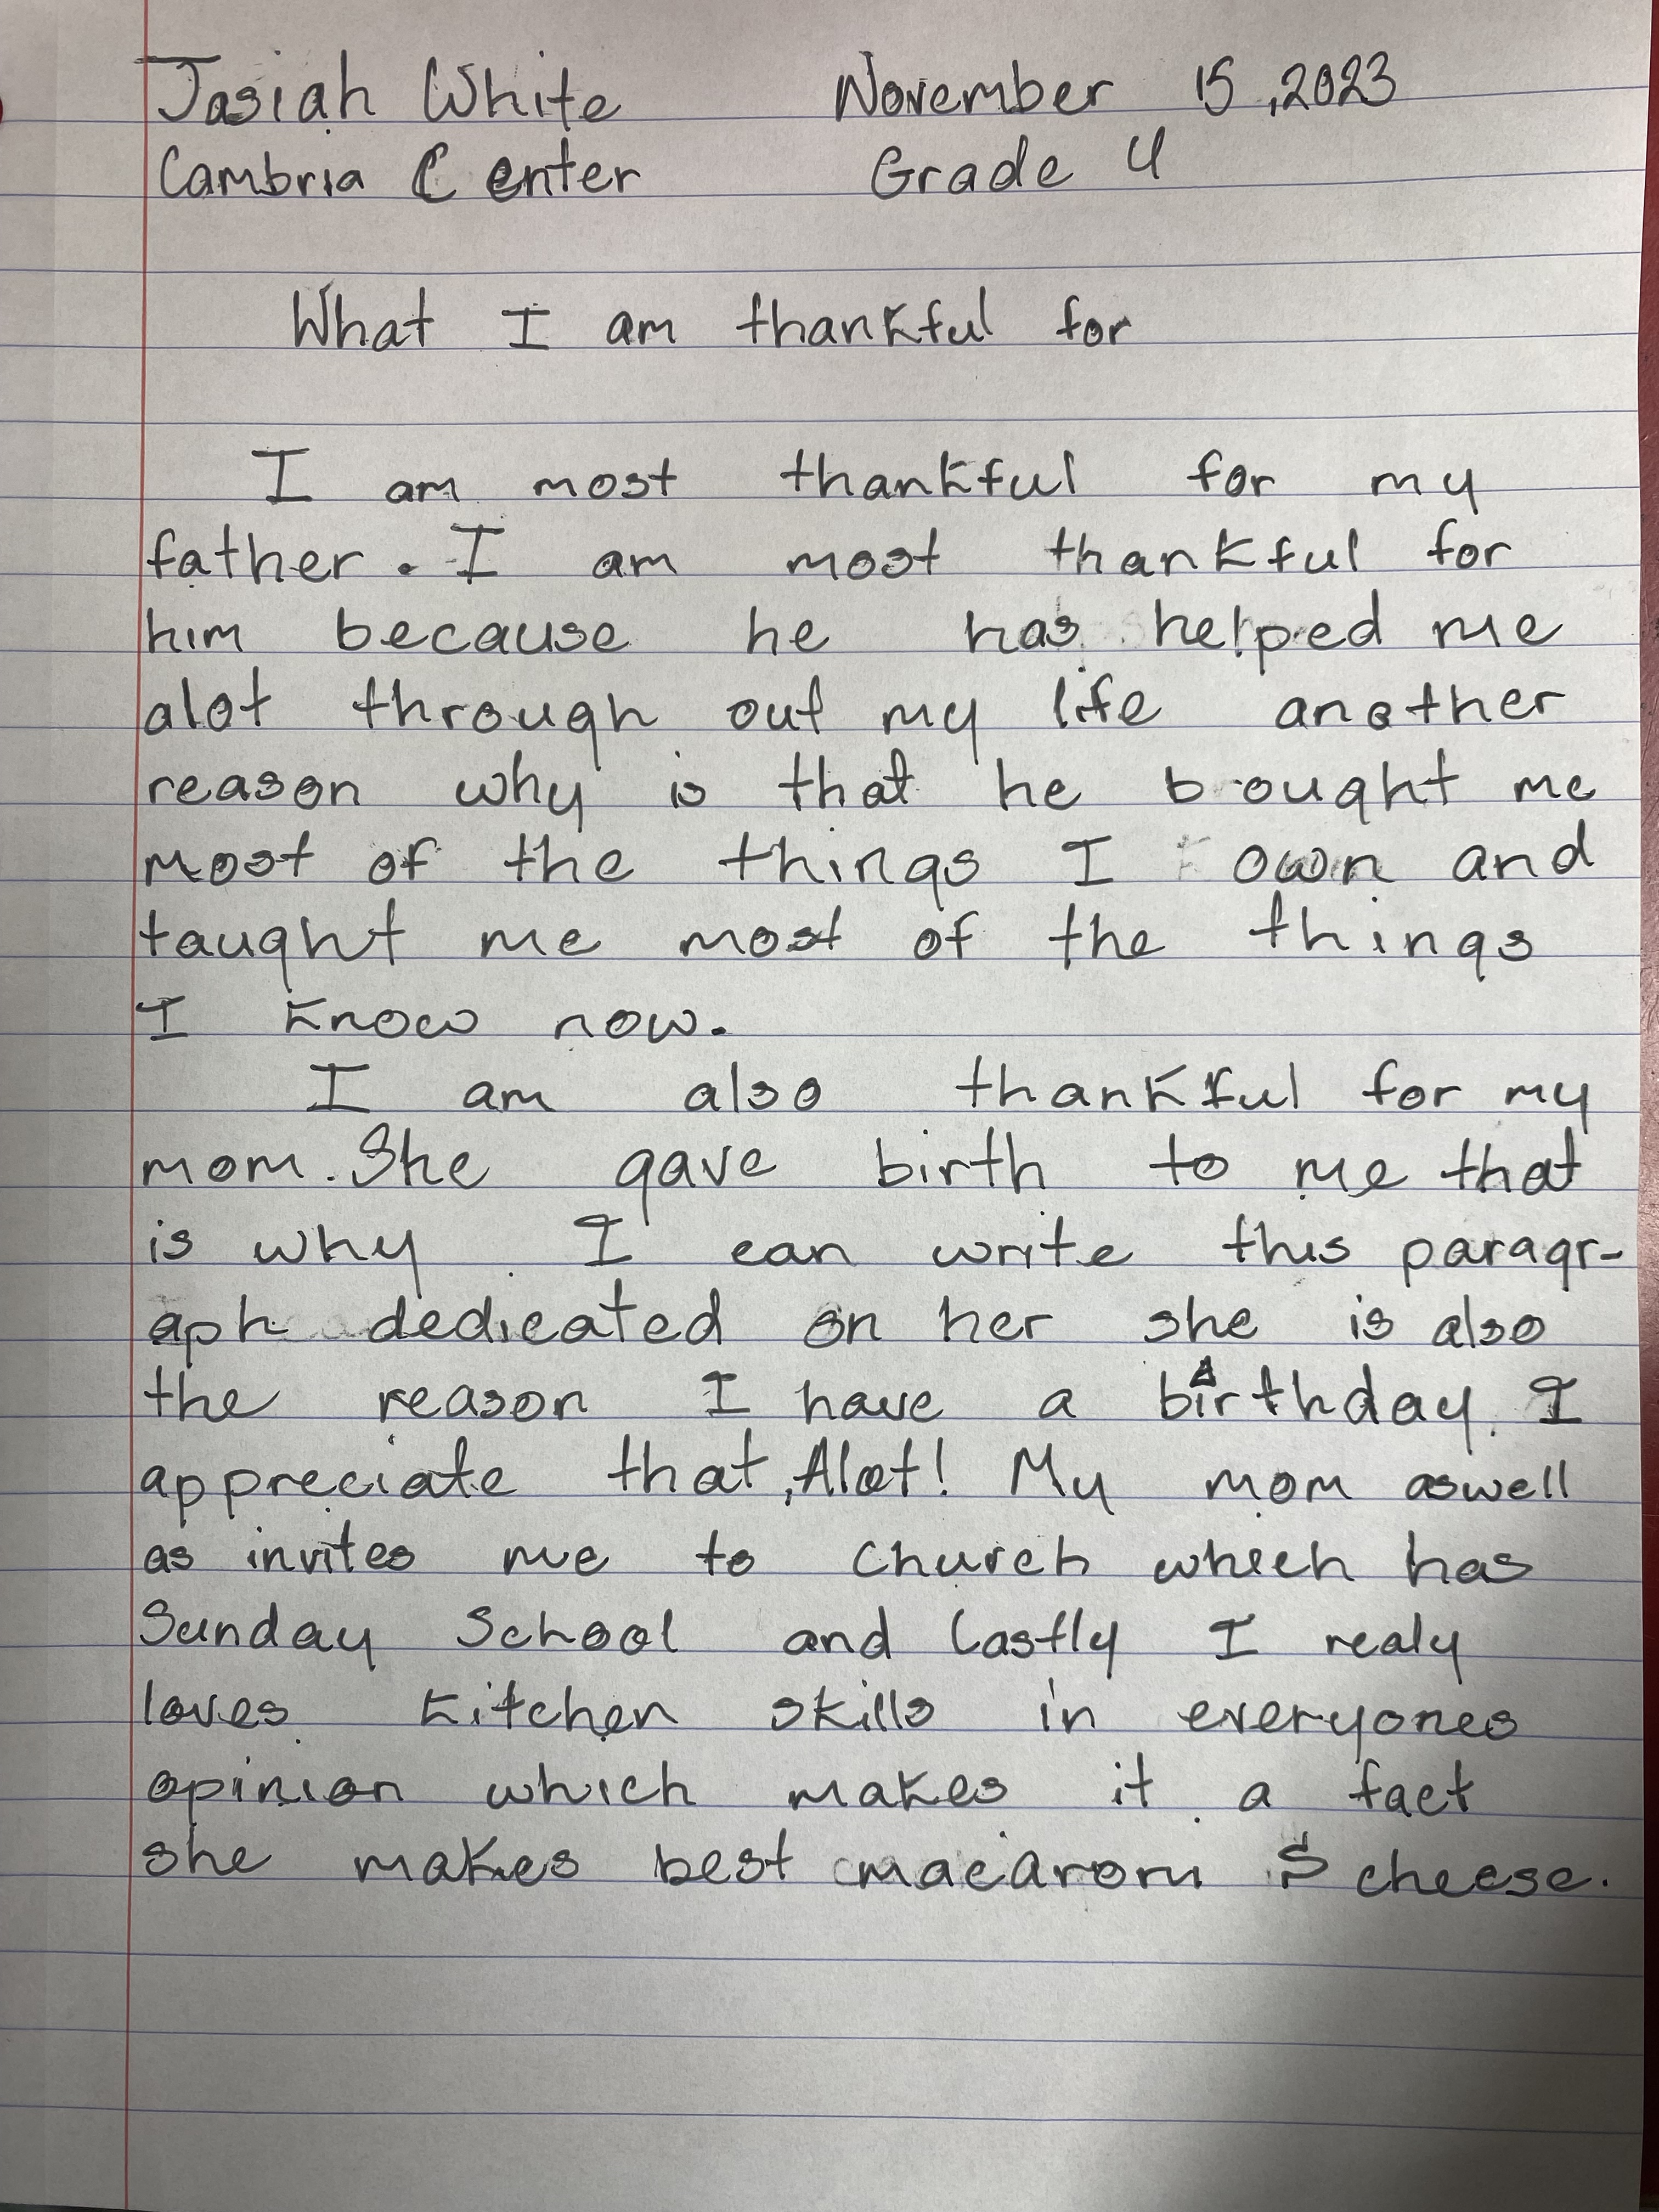 Jasiah White November 15, 2023
Cambria Center Grade 4
What I am thankful for
I am most thankful for my
father. I am most thankful for
him because he has helped me
alot through out my life another
reason why is that he bought me
most of the things I own and
taught me most of the things
I know now.
I am also thankful for my
mom. She gave birth to me that
is why I can write this paragr-
aph dedicated on her she is also
the reason I have a birthday. I
appreciate that, Alot! My mom aswell
as invites me to church which has
Sunday School and lastly I realy
loves kitchen skills in everyones
opinion which makes it a fact
she makes best macaroni & cheese.